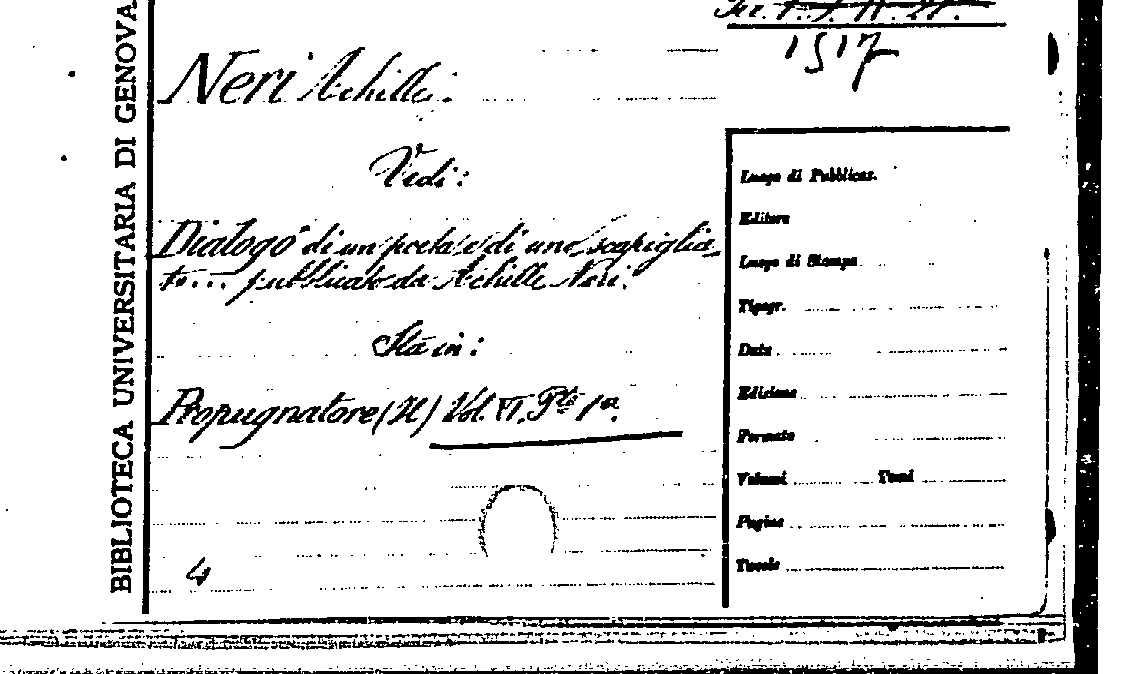 BIBLIOTECA UNIVERSITARIA DI GENOVA
1517
Neri Achille:
Vedi:
Dialogo di un poeta e di uno scapiglia-
to... pubblicato da Achille Neri.
Sta in:
Propugnatore (Il) Vol. VI, Pte 1a.
4
Luogo di Pubblicaz.
Editore
Luogo di Stampa
Tipogr.
Data
Edizione
Formato
Volumi Tomi
Pagine
Tavole